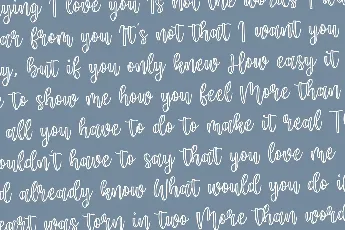 ying I love you Is not the words I wa
ar from you It's not that I want you
y, but if you only knew How easy it
to show me how you feel More than
all you have to do to make it real T
ouldn't have to say that you love me
d already know What would you do i
eart was torn in two More than word